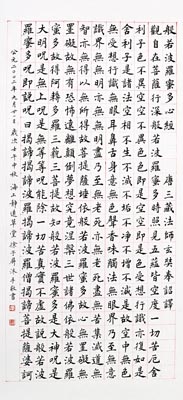 般若波羅蜜多心經 唐三藏法師玄奘奉詔譯
觀自在菩薩行深般若波羅蜜多時照見五蘊皆空度一切苦厄舍
利子色不異空空不異色色即是空空即是色受想行識亦復如是
舍利子是諸法空相不生不滅不垢不淨不增不減是故空中無色
無受想行識無眼耳鼻舌身意無色聲香味觸法無眼界乃至無意
識界無無明亦無無明盡乃至無老死亦無老死盡無苦集滅道無
智亦無得以無所得故菩提薩埵依般若波羅蜜多故心無罣礙無
罣礙故無有恐怖遠離顛倒夢想究竟涅槃三世諸佛依般若波羅
蜜多故得阿耨多羅三藐三菩提故知般若波羅蜜多是大神咒是
大明咒是無上咒是無等等咒能除一切苦真實不虛故說般若波
羅蜜多咒即說咒曰揭諦揭諦波羅揭諦波羅僧揭諦菩提薩婆訶
公元二〇 年 月 日歲次 徐子 敬書